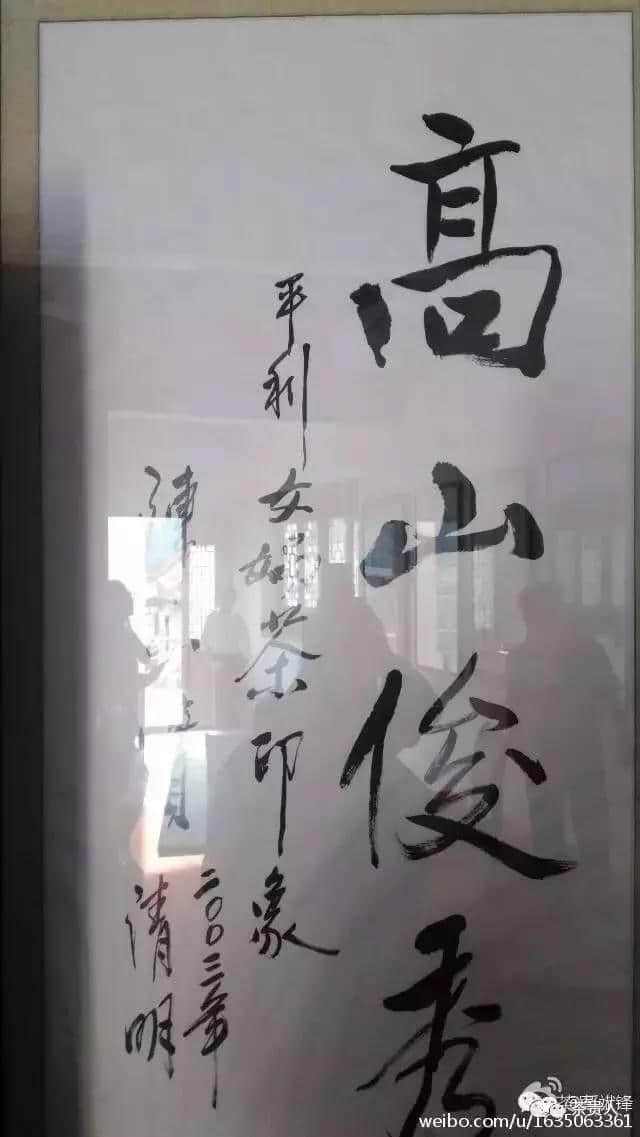 高山俊秀
平利女娲茶印象
陳
二〇〇三年
清明
茶贵人
weibo.com/u/1635063361